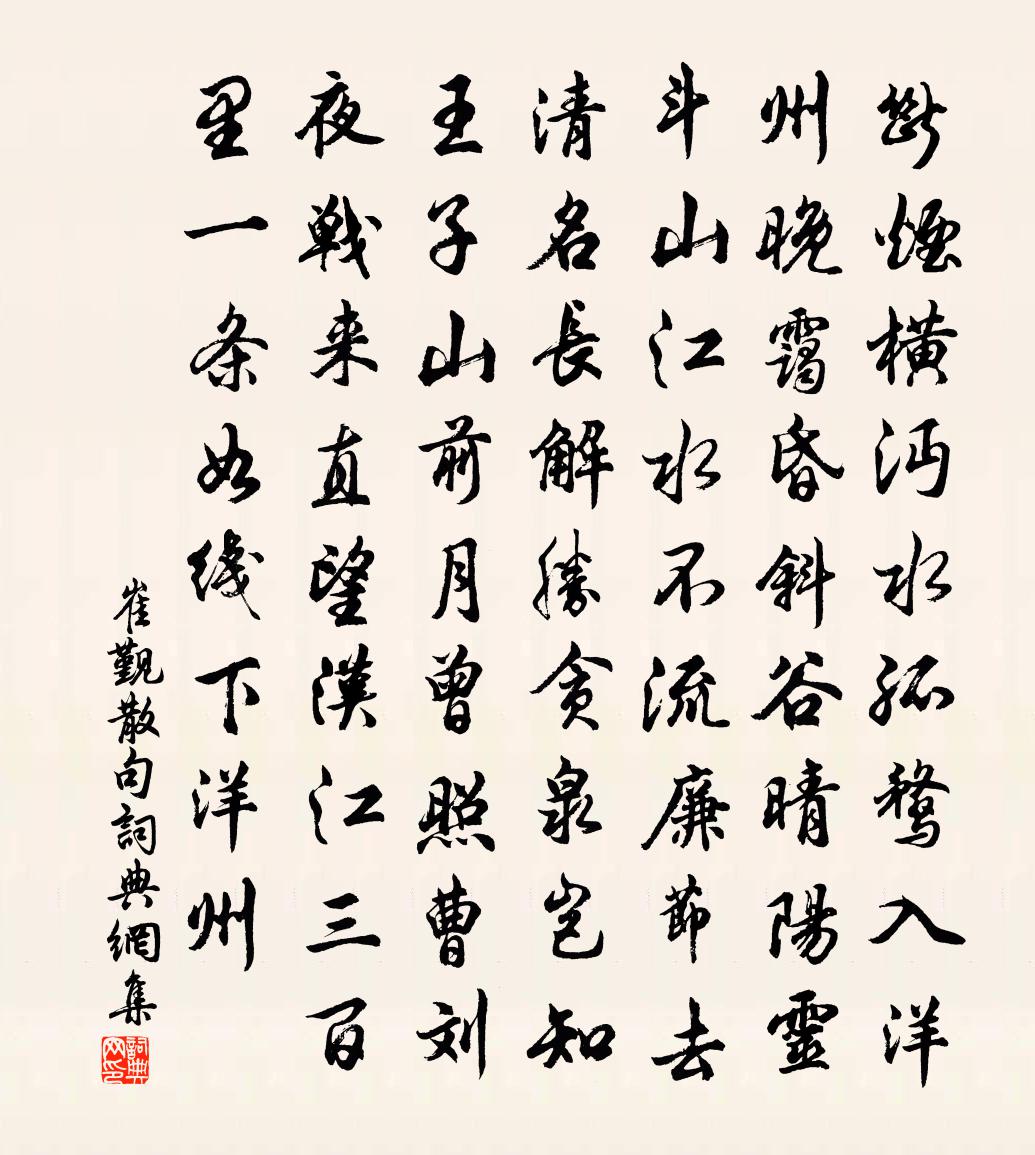 斷煙横沔水孤鶩入洋
州晚靄昏斜谷晴陽靈
斗山江水不流廉節去
清名長解勝貪泉豈知
王子山前月曾照曹刘
夜戰来直望漢江三百
里一条如线下洋州
崔覲散句詞典網集
詞典网印